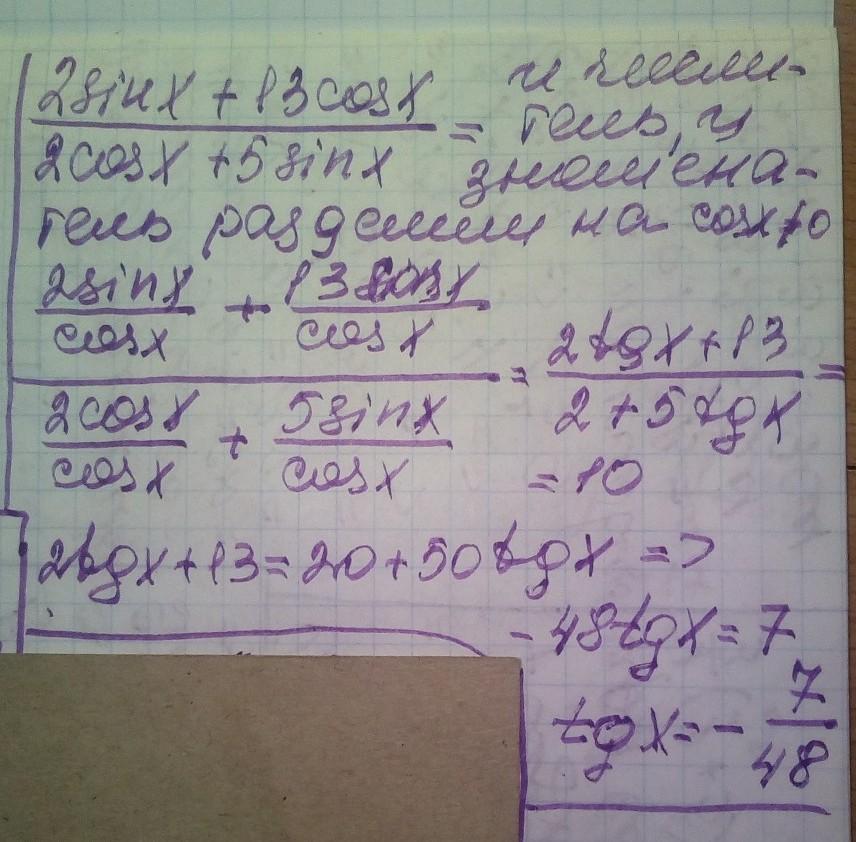 2sinx + 13cosx / 2cosx + 5sinx = и числи-
тель, и
знамена-
тель разделим на cosx≠0
2sinx/cosx + 13cosx/cosx / 2cosx/cosx + 5sinx/cosx = 2tgx+13 / 2+5tgx =
=10
2tgx+13=20+50tgx =>
-48tgx=7
tgx=-7/48